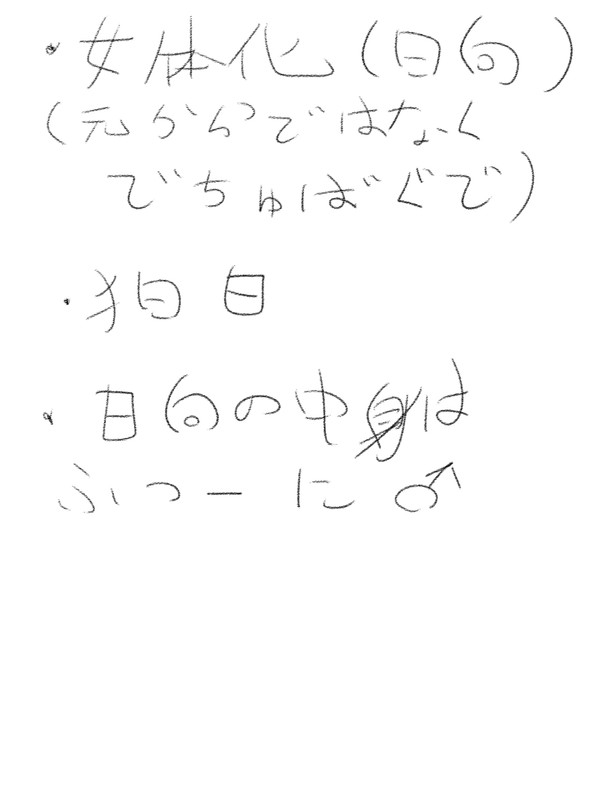 ・女体化(日向)
(元からではなく
でちゅばぐで)
・狛日
・日向の中身は
ふつーに♂